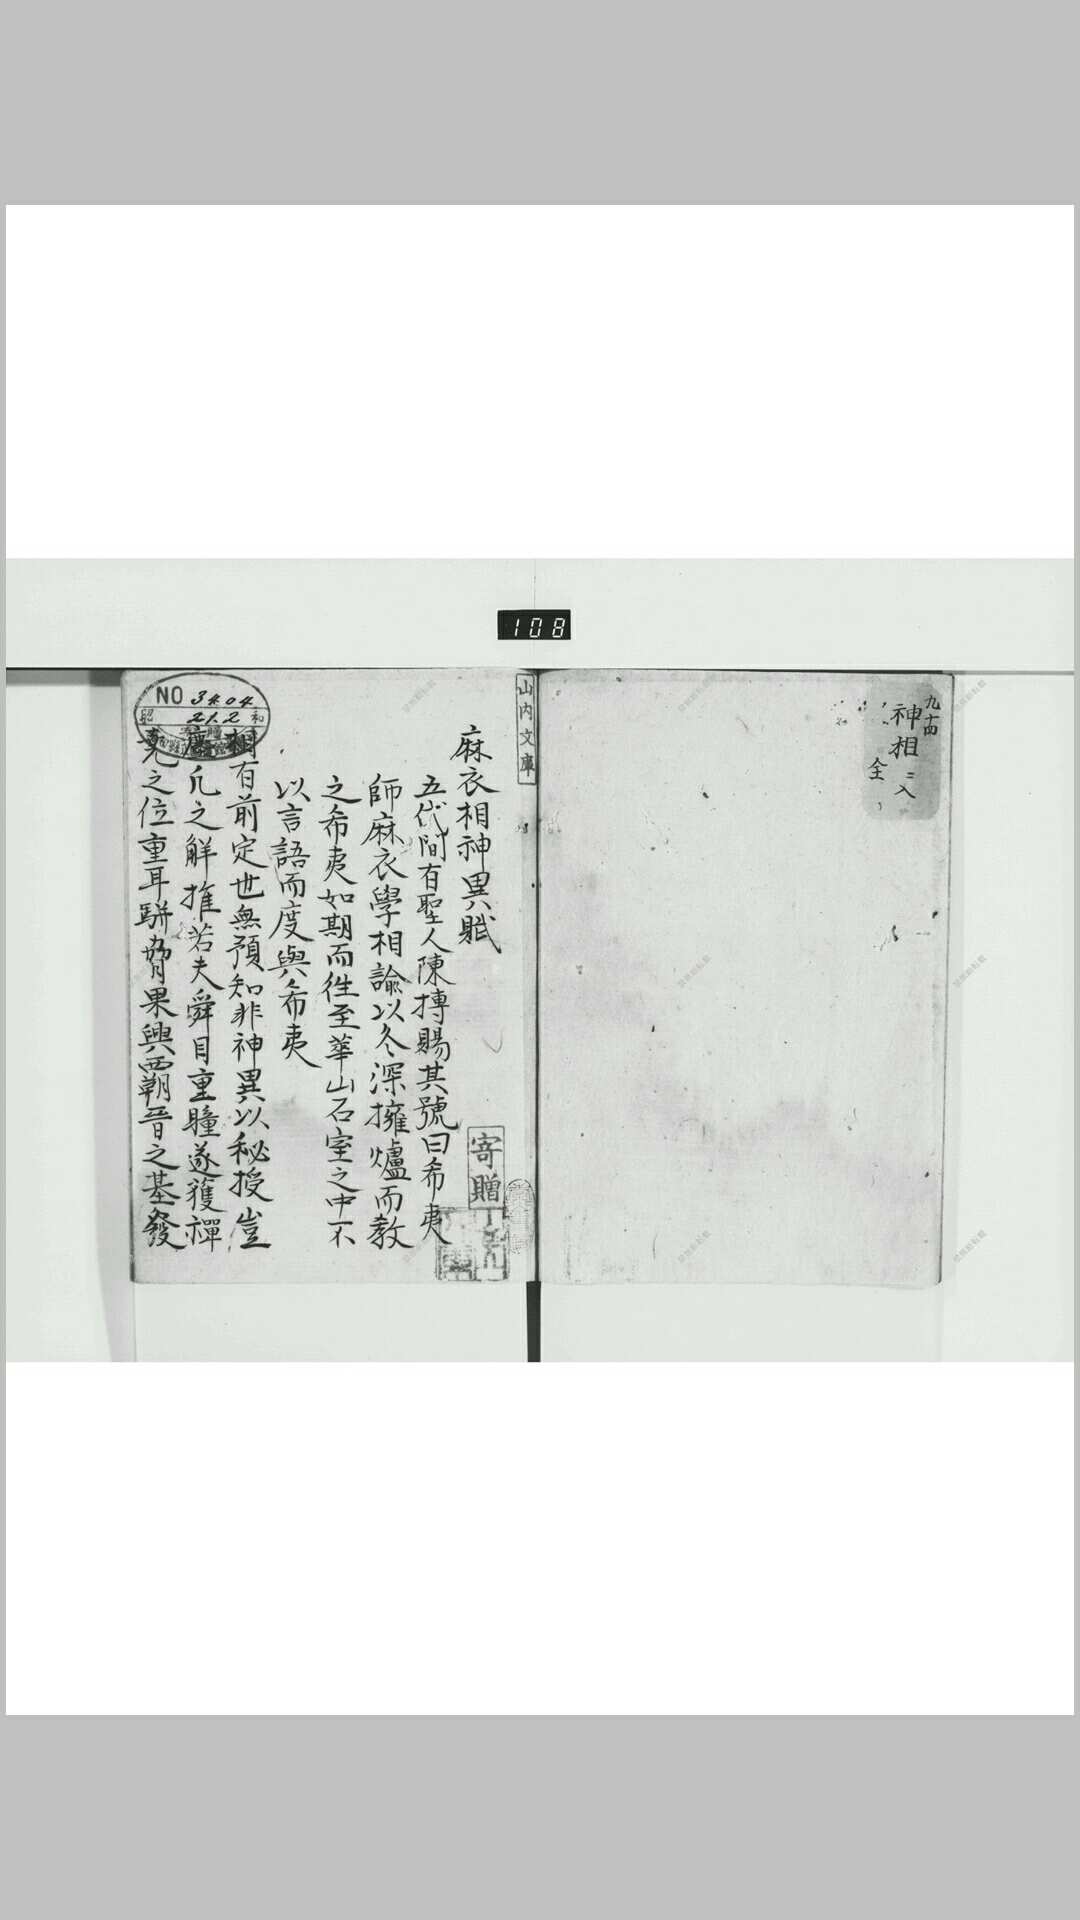 108
九十四
神相
全
入
山内文庫
麻衣相神異賦
五代間有聖人陳摶賜其號曰希夷
師麻衣學相諭以冬深擁爐而教
之希夷如期而徃至華山石室之中不
以言語而度與希夷
相有前定世無預知非神異以秘授豈
塵凡之觧推若夫舜目重瞳遂獲禪
堯之位重耳駢脅果興西覇晋之基發
寄贈
NO 34.04
昭和
21.2